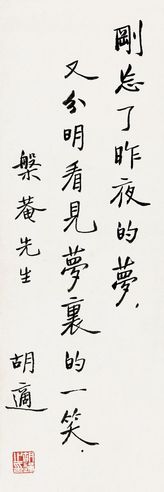 剛忘了昨夜的夢，
又分明看見夢裏的一笑．
槃菴先生
胡適